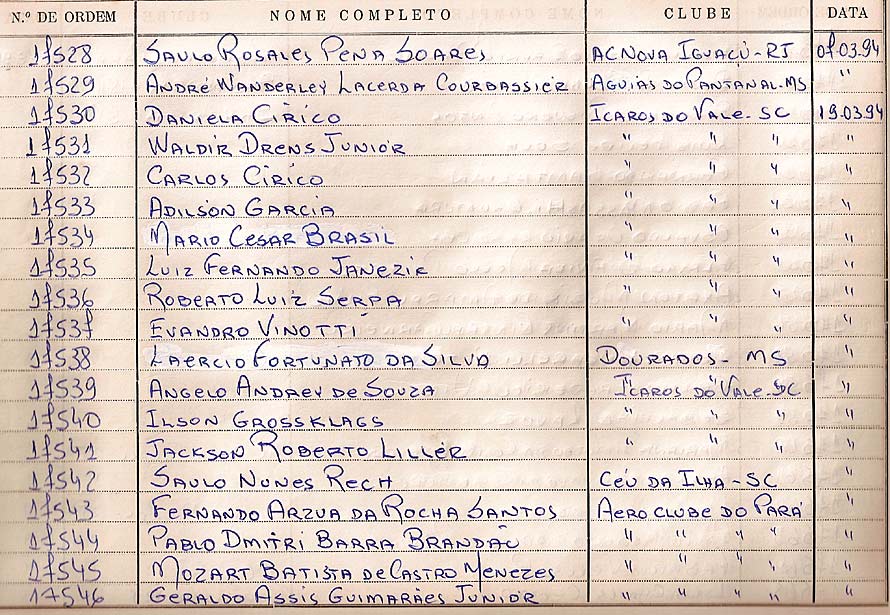 N.º DE ORDEM NOME COMPLETO CLUBE DATA
17528 SAULO ROSALES PENA SOARES AC NOVA IGUAÇÚ-RJ 07.03.94
17529 ANDRÉ WANDERLEY LACERDA COURBASSIER AGUIAS DO PANTANAL-MS "
17530 DANIELA CIRICO ICAROS DO VALE-SC 19.03.94
17531 WALDIR DRENS JUNIOR " " " "
17532 CARLOS CIRICO " " " "
17533 ADILSON GARCIA " " " "
17534 MARIO CESAR BRASIL " " " "
17535 LUIZ FERNANDO JANEZIC " " " "
17536 ROBERTO LUIZ SERPA " " " "
17537 EVANDRO VINOTTI " " " "
17538 LAERCIO FORTUNATO DA SILVA DOURADOS - MS "
17539 ANGELO ANDREY DE SOUZA ICAROS DO VALE-SC "
17540 ILSON GROSSKLAGS " " " "
17541 JACKSON ROBERTO LILLER " " " "
17542 SAULO NUNES RECH CÉU DA ILHA-SC "
17543 FERNANDO ARZUA DA ROCHA SANTOS AEROCLUBE DO PARÁ "
17544 PABLO DMITRI BARRA BRANDÃO " " " " "
17545 MOZART BATISTA DE CASTRO MENEZES " " " " "
17546 GERALDO ASSIS GUIMARÃES JUNIOR " " " " "